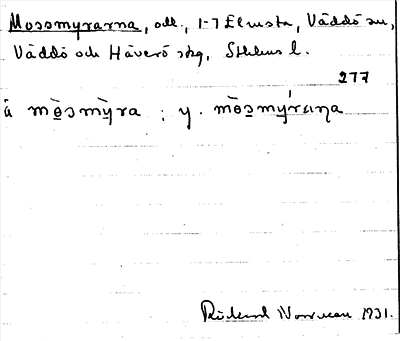 Mossmyrarna, odl., 1-7 Elmsta, Väddö sn,
Väddö och Häverö skg, Sthlms l.
277
å mòsmỳra ; y. mòsmýrɑṇa
Rickard Norman 1931.